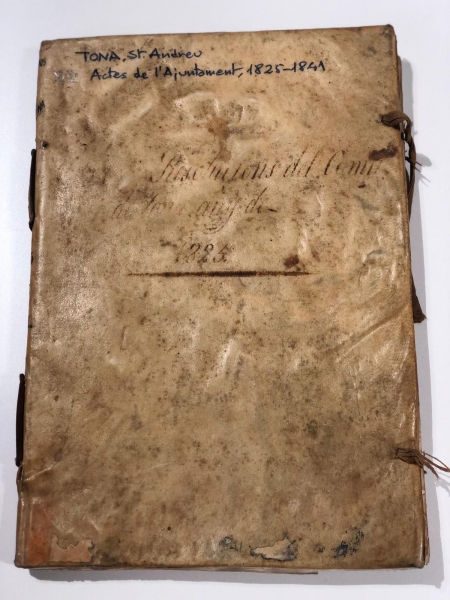 TONA, St. Andreu
Actes de l'Ajuntament, 1825-1841
Resolucions del Comú
de Tona any de
1825